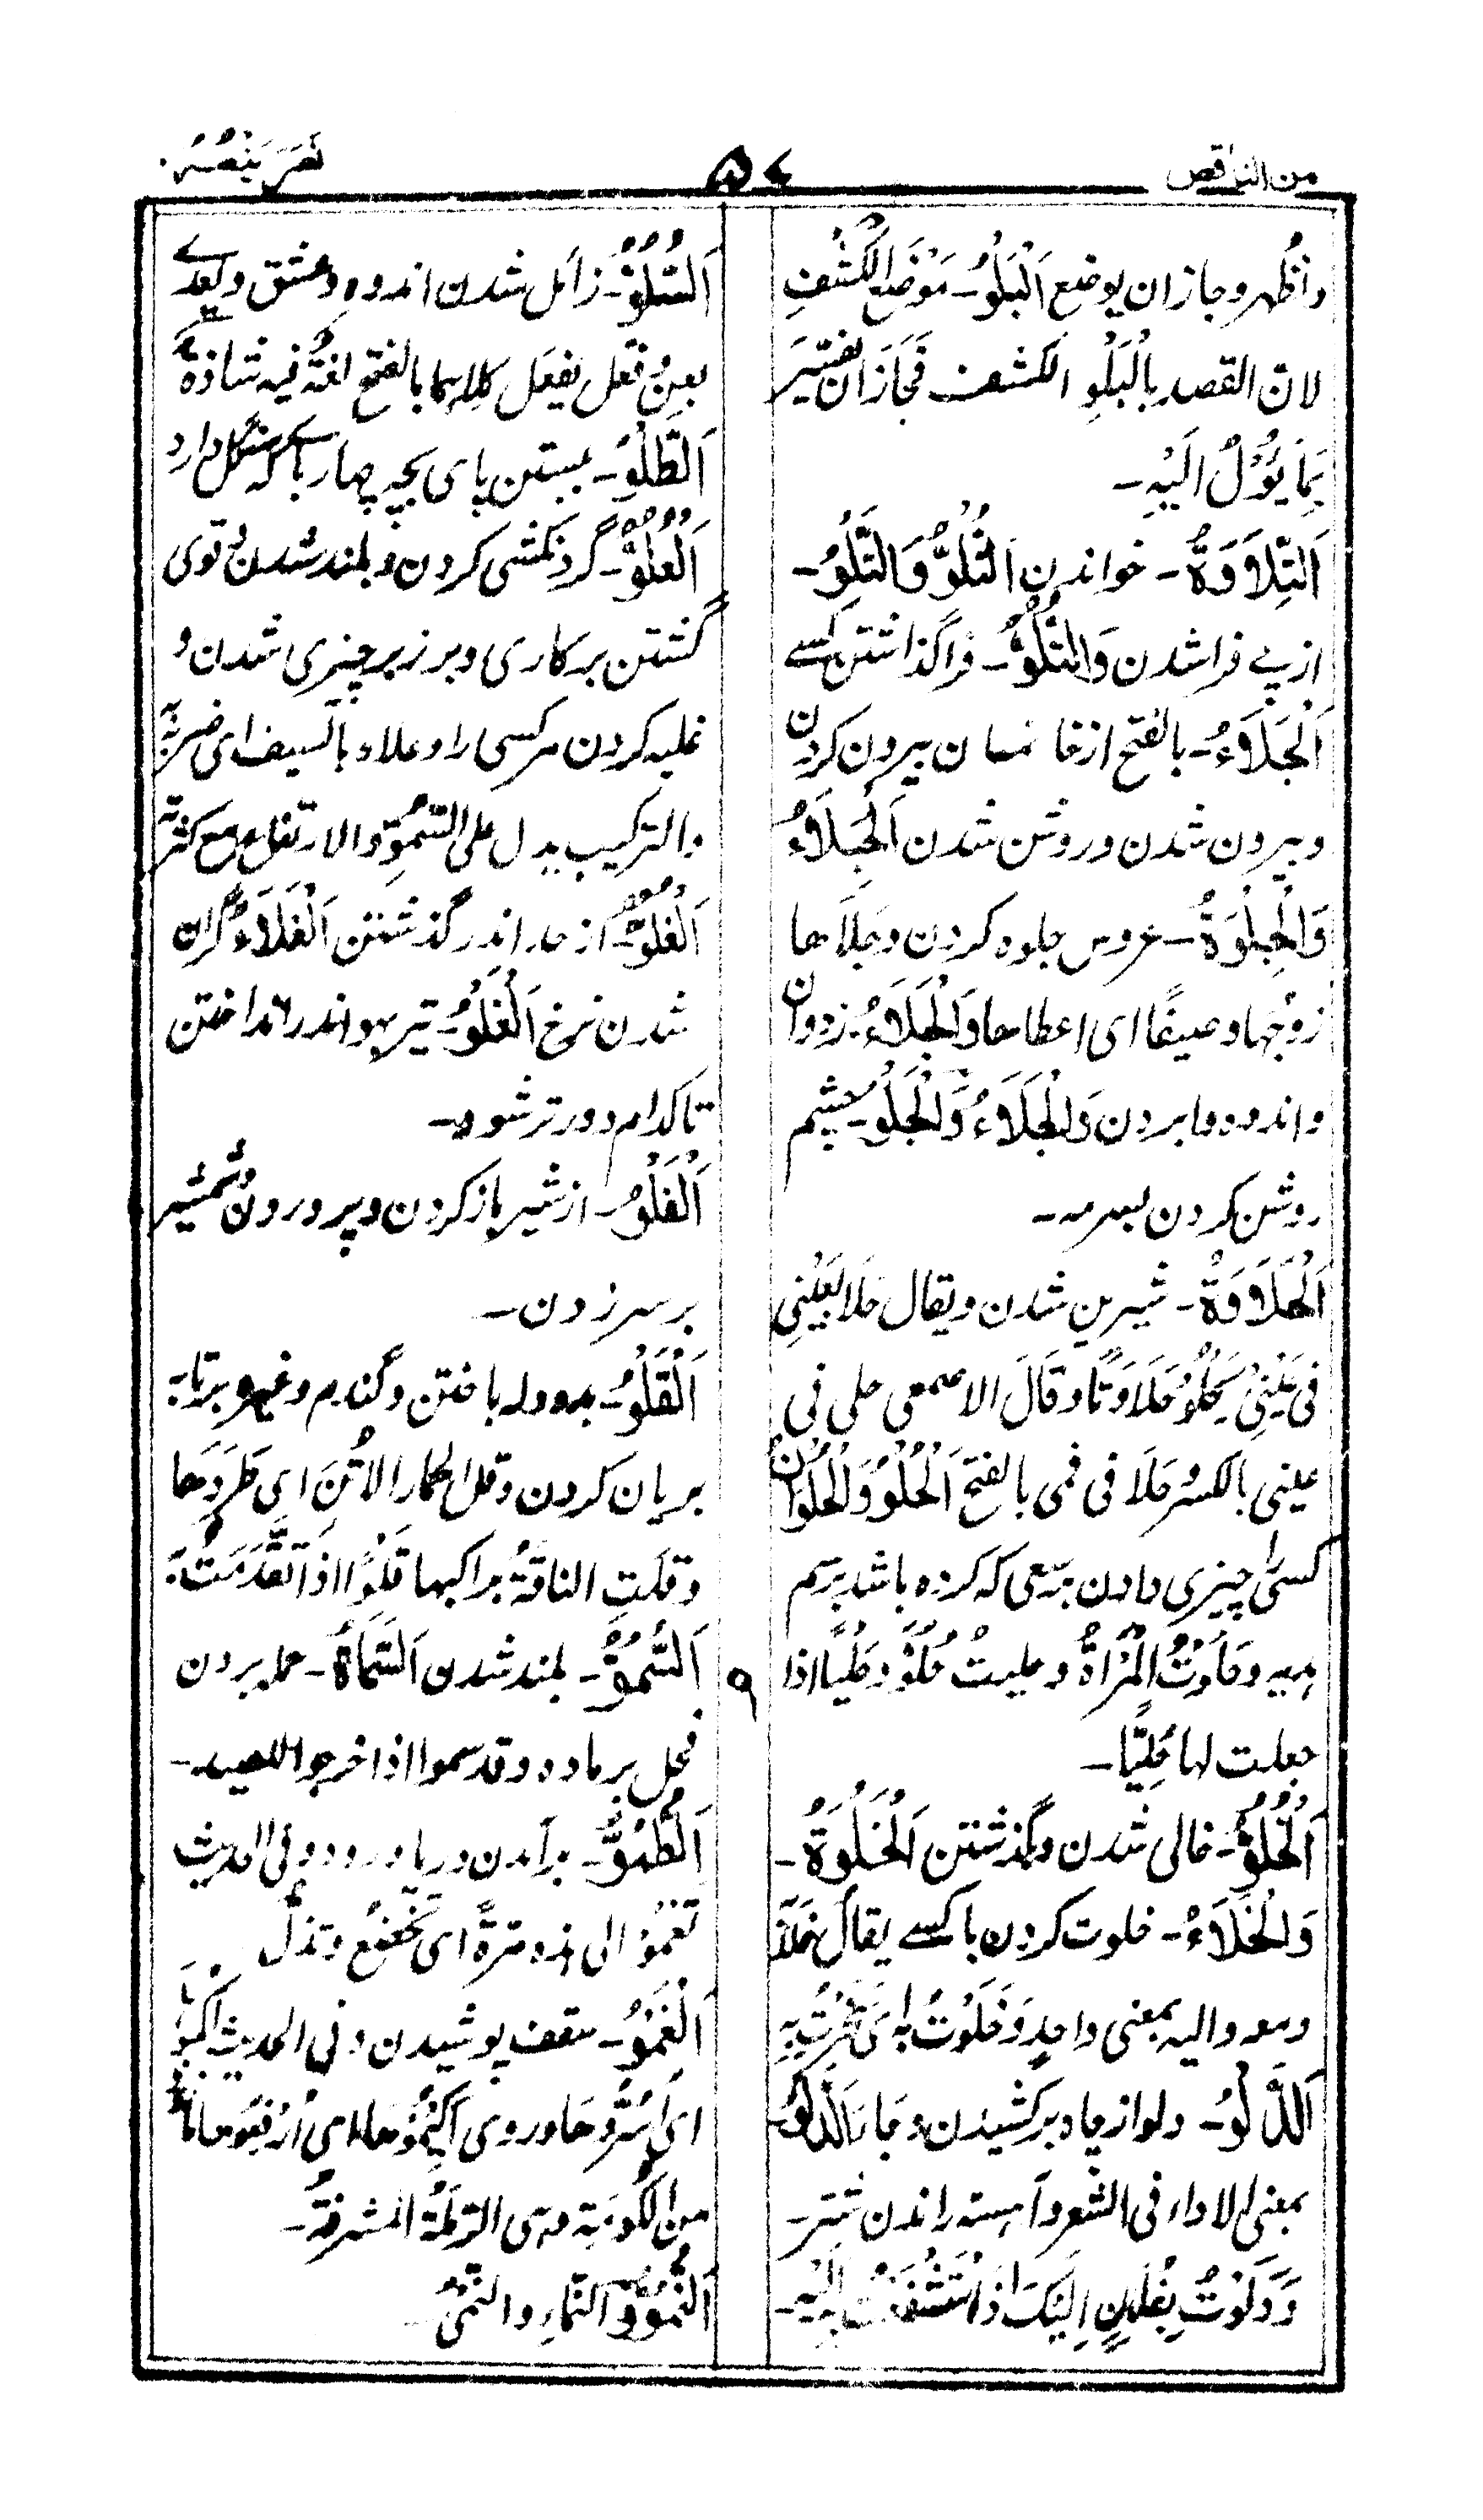 من الناقص
۵۴
نَصَرَ یَنْصُرُ
واَظهر وجاز ان یوضع اَلْبَلْوُ۔ مَوْضَعَ الْکَشْفِ
لان القصد بِالْبَلْوِ الکشف فَجَازَ ان یُفَسَّرَ
بِمَا یَؤُوْلُ اِلَیْهِ۔
اَلتِّلَاوَةُ۔ خواندن اَلتُّلُوُّ وَالتِّلْوُ۔
از پے فرا شدن وَالتُّلُوُّ۔ فرا گذاشتن کسے
اَلْجَلَاءُ۔ بالفتح از خانمان بیرون کردن
وبیرون شدن وروشن شدن اَلْجِلَاءُ
وَالْجِلْوَةُ۔ عروس جلوه کردن وجَلَاها
زوجُها وصیفًا ای اعطاها وَالْجَلَاءُ۔ زدودن
واندوه وا بردن وَالْجَلَاءُ وَالْجَلْوُ۔ چشم
روشن کردن بسرمه۔
اَلْحَلَاوَةُ۔ شیرین شدن ویقال حَلَا بِعَیْنِی
فِی عَیْنِیْ یَحْلُوْ حَلَاوَتًا وقَالَ الاصمعی حلی فی
عینی بالکسر حَلَا فی فمی بالفتح اَلْحُلْوُ وَالْحُلْوَانُ
کسی را چیزی دادن برسعی که کرده باشد برسم
هدیه وحَلَوْتُ الْمَرْاَةَ وحلیتُ حُلُوًّ وحُلِیًّا اذا
جعلت لها حُلِیًّا۔
اَلْخُلُوُّ۔ خالی شدن وگذشتن اَلْخَلْوَةُ۔
وَالْخَلَاءُ۔ خلوت کردن با کسے یقال خَلَا بِهٖ
ومعه والیه بمعنی واحِدٍ وَخَلَوْتُ بِهٖ ای سَخِرْتُ بِهٖ
اَلدَّلْوُ۔ دلو از چاه برکشیدن وجاز اَلدَّلْوُ
بمعنی الادلاء فی الشعر وآهسته راندن شتر۔
وَدَلَوْتُ بِفُلَانٍ اِلَیْکَ اذا اسْتَشْفَعْتُ بِهٖ اِلَیْهِ۔
اَلسُّلُوُّ۔ زائل شدن اندوه وعشق ویُعَدّے
بعن وفَعَلَ یَفْعَل کلاهما بالفتح لغةٌ فیه شاذةٌ
اَلطَّلْوُ۔ ببستن پای بچه چهارپا که شکل دارد
اَلْعُلُوُّ۔ گردنکشی کردن وبلند شدن وقوی
گشتن بر کاری وبر زبر چیزی شدن و
غلبه کردن مر کسی را وعلاه بالسیف ای ضربه
والترکیب یدل علی السُّمُوِّ والارتفاع مع کثرته
اَلْغُلُوُّ۔ از حد اندر گذشتن اَلْغَلَاءُ گران
شدن نرخ اَلْغَلْوُ۔ تیر بهوا اندر انداختن
تا کدام دورتر شود۔
اَلْفَلْوُ۔ از شیر باز کردن وپروردن وشمشیر
بر سر زدن۔
اَلْقَلْوُ۔ بدودله باختن وگندم وغیره برتابه
بریان کردن وقلا الحمار الاُتُنَ ای طَرَدَها
وقلَتِ الناقةُ براکبها قَلْوًا اذا تَقَدَّمَتْ بِهٖ
اَلسُّمُوُّ۔ بلند شدن اَلسَّمَاءُ۔ حمله بردن
فحل بر ماده وقد سموا اذا خرجوا للصید۔
اَلطُّمُوُّ۔ برآمدن دریا ورود وفی الحدیث
تَعْمُوْ الی هذه مَرَّةً ای تَخْضَعُ وتذلّ
اَلْغَمْوُ۔ سقف پوشیدن وفی الحدیث
ای اسْتُرُوْها وروی اَکِیْمُوْهَا ای ارْفَعُوْها
من الکُوْمَةِ وهی الرَّمْلَةُ المشرفةُ۔
اَلنُّمُوُّ وَالنَّمَاءُ والنُّمِیُّ